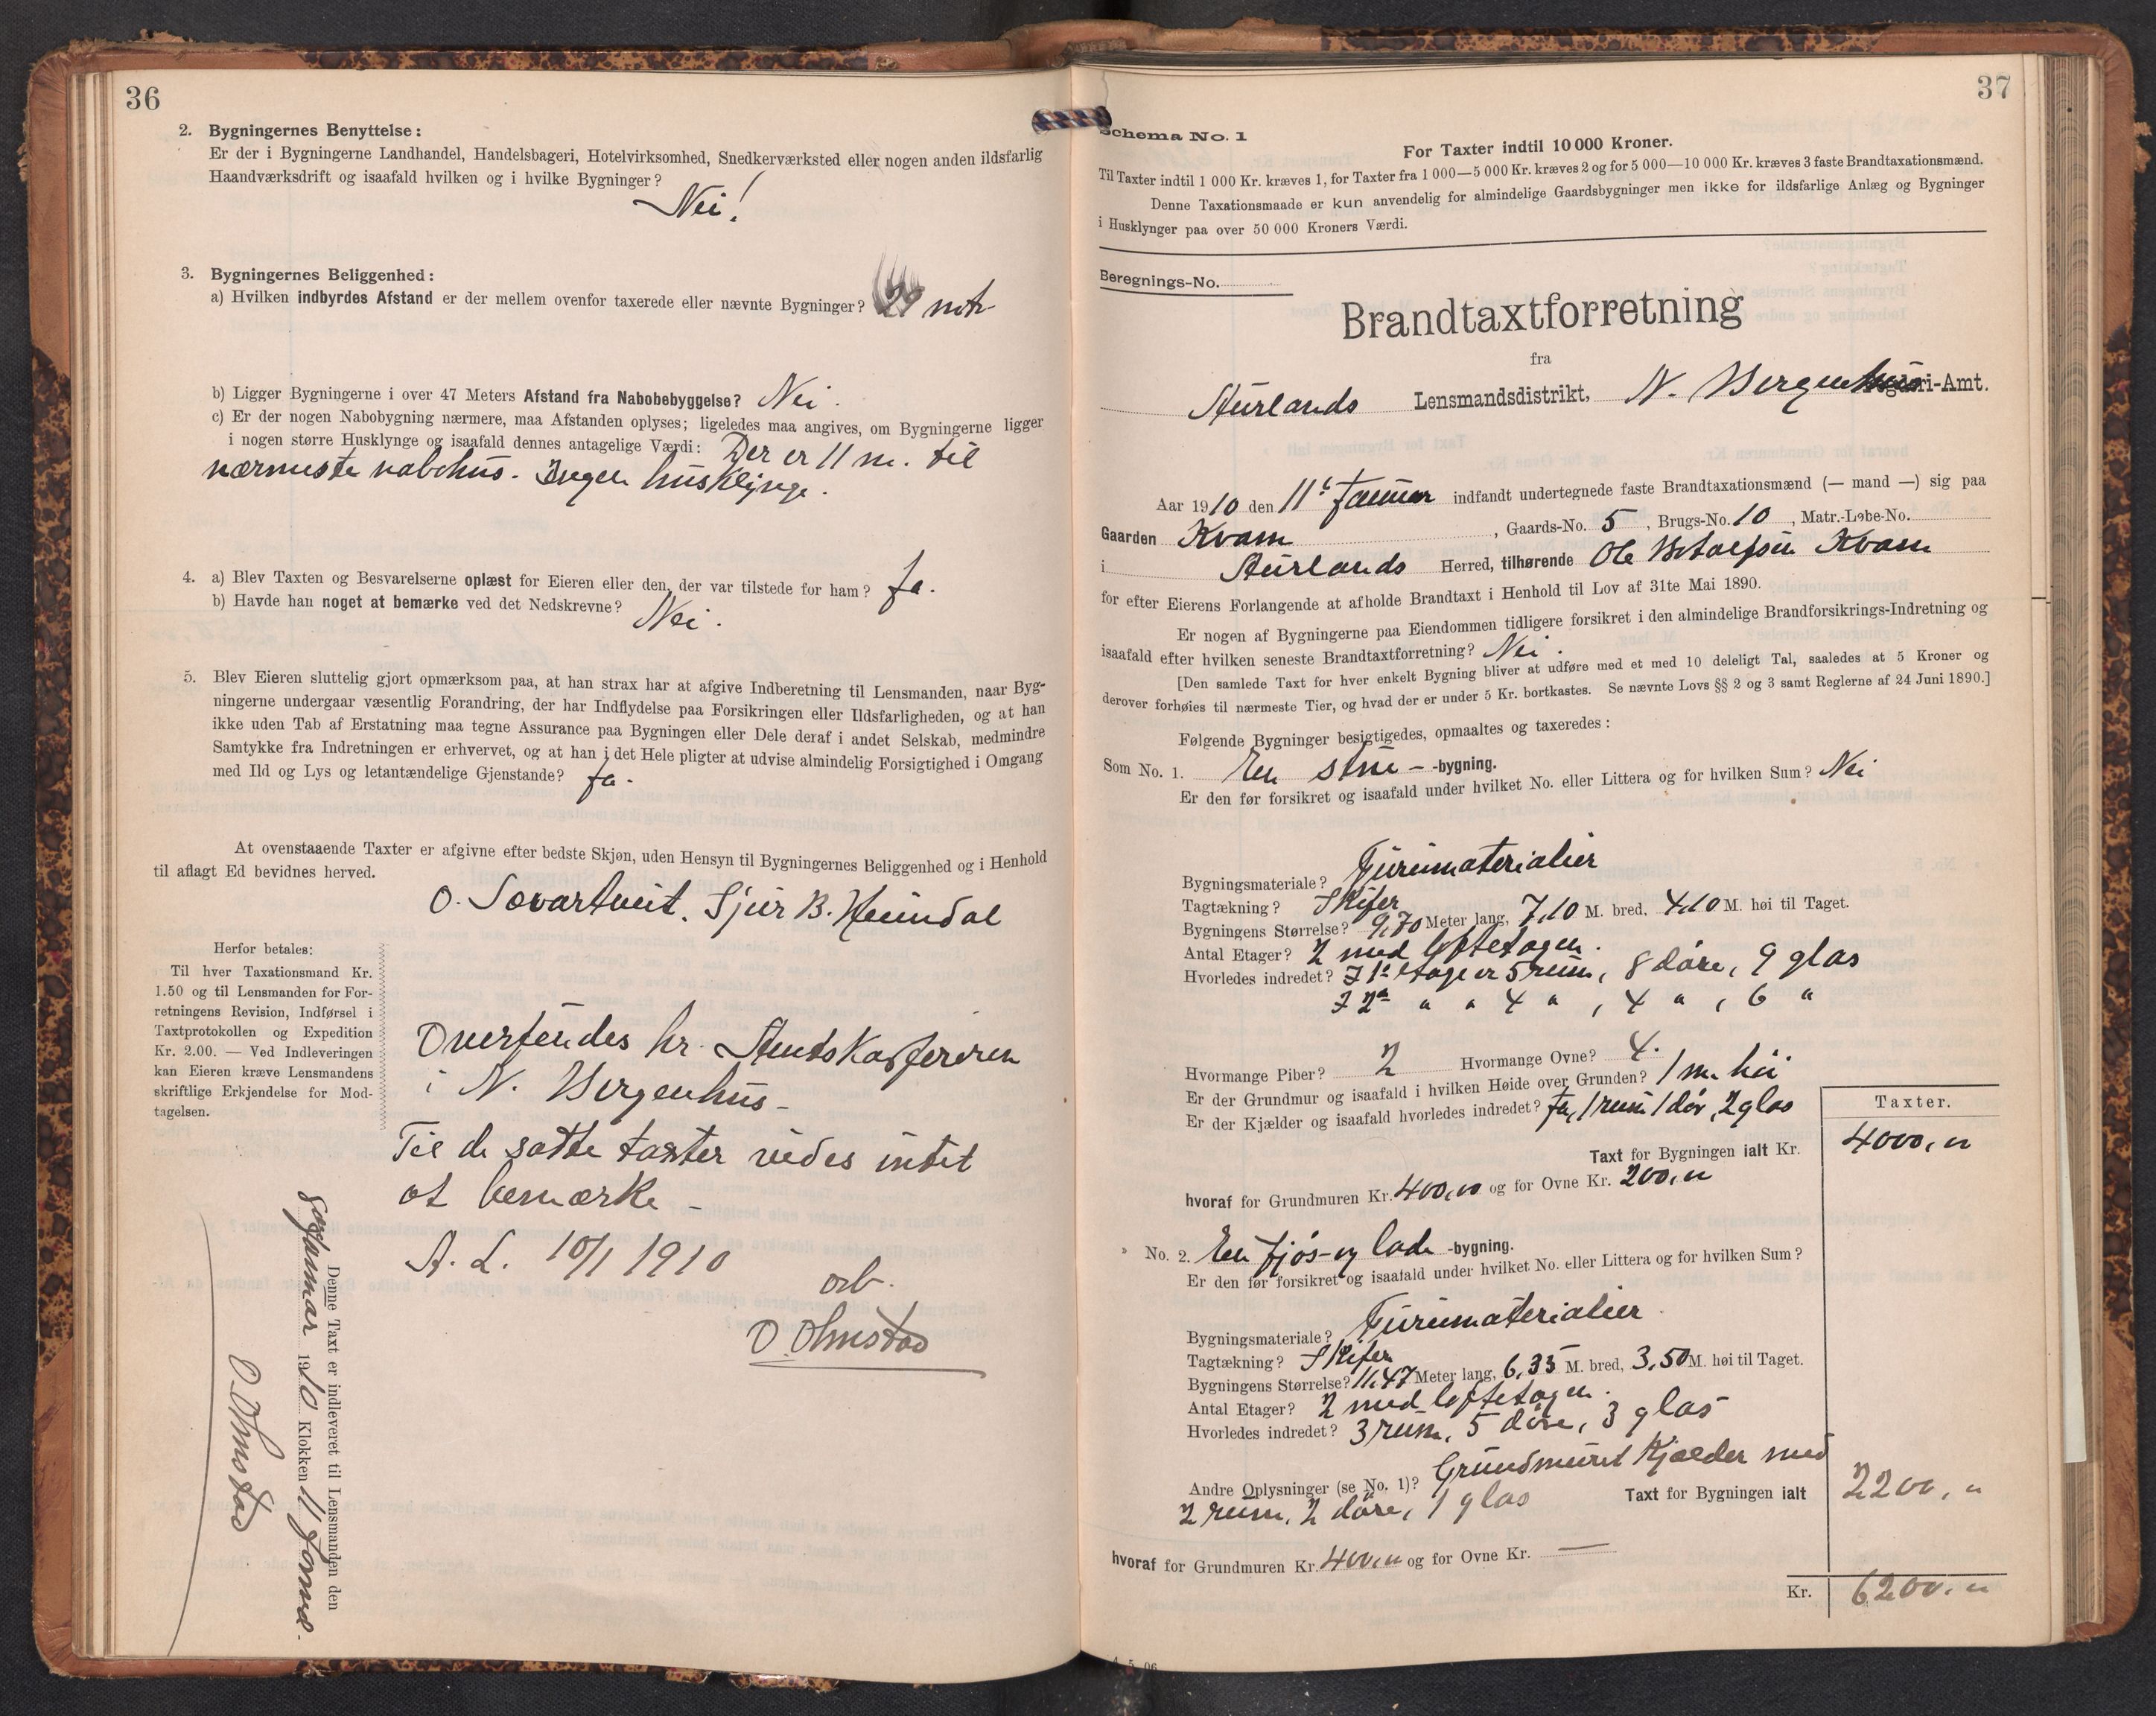 36
2. Bygningernes Benyttelse:
Er der i Bygningerne Landhandel, Handelsbageri, Hotelvirksomhed, Snedkerværksted eller nogen anden ildsfarlig
Haandværksdrift og isaafald hvilken og i hvilke Bygninger?
Nei!
3. Bygningernes Beliggenhed:
a) Hvilken indbyrdes Afstand er der mellem ovenfor taxerede eller nævnte Bygninger? 29 mtr
b) Ligger Bygningerne i over 47 Meters Afstand fra Nabobebyggelse? Nei.
c) Er der nogen Nabobygning nærmere, maa Afstanden oplyses; ligeledes maa angives, om Bygningerne ligger
i nogen større Husklynge og isaafald dennes antagelige Værdi: Der er 11 m. til
nærmeste nabohus. Ingen husklynge.
4. a) Blev Taxten og Besvarelserne oplæst for Eieren eller den, der var tilstede for ham? Ja.
b) Havde han noget at bemærke ved det Nedskrevne? Nei.
5. Blev Eieren sluttelig gjort opmærksom paa, at han strax har at afgive Indberetning til Lensmanden, naar Byg-
ningerne undergaar væsentlig Forandring, der har Indflydelse paa Forsikringen eller Ildsfarligheden, og at han
ikke uden Tab af Erstatning maa tegne Assurance paa Bygningen eller Dele deraf i andet Selskab, medmindre
Samtykke fra Indretningen er erhvervet, og at han i det Hele pligter at udvise almindelig Forsigtighed i Omgang
med Ild og Lys og letantændelige Gjenstande? Ja.
At ovenstaaende Taxter er afgivne efter bedste Skjøn, uden Hensyn til Bygningernes Beliggenhed og i Henhold
til aflagt Ed bevidnes herved.
O. Sivartveit. Sjur B. Heimdal
Herfor betales:
Til hver Taxationsmand Kr.
1.50 og til Lensmanden for For-
retningens Revision, Indførsel i
Taxtprotokollen og Expedition
Kr. 2.00. — Ved Indleveringen
kan Eieren kræve Lensmandens
skriftlige Erkjendelse for Mod-
tagelsen.
Oversendes hr. Amtskasfereren
i N. Bergenhus-
Til de satte taxter vides intet
at bemærke -
A. L. 10/1 1910
arb.
O. Ohnstad
Denne Taxt er indleveret til Lensmanden den
8de januar 1910 Klokken 11 formd.
O. Ohnstad
37
Schema No. 1
For Taxter indtil 10 000 Kroner.
Til Taxter indtil 1 000 Kr. kræves 1, for Taxter fra 1 000—5 000 Kr. kræves 2 og for 5 000—10 000 Kr. kræves 3 faste Brandtaxationsmænd.
Denne Taxationsmaade er kun anvendelig for almindelige Gaardsbygninger men ikke for ildsfarlige Anlæg og Bygninger
i Husklynger paa over 50 000 Kroners Værdi.
Beregnings-No.
Brandtaxtforretning
fra
Aurlands Lensmandsdistrikt, N. Bergenhus Fogderi-Amt.
Aar 1910 den 11te januar indfandt undertegnede faste Brandtaxationsmænd (— mand —) sig paa
Gaarden Kvam, Gaards-No. 5, Brugs-No. 10, Matr.-Løbe-No.
i Aurlands Herred, tilhørende Ole Botolfsen Kvam
for efter Eierens Forlangende at afholde Brandtaxt i Henhold til Lov af 31te Mai 1890.
Er nogen af Bygningerne paa Eiendommen tidligere forsikret i den almindelige Brandforsikrings-Indretning og
isaafald efter hvilken seneste Brandtaxtforretning? Nei.
[Den samlede Taxt for hver enkelt Bygning bliver at udføre med et med 10 deleligt Tal, saaledes at 5 Kroner og
derover forhøies til nærmeste Tier, og hvad der er under 5 Kr. bortkastes. Se nævnte Lovs §§ 2 og 3 samt Reglerne af 24 Juni 1890.]
Følgende Bygninger besigtigedes, opmaaltes og taxeredes:
Som No. 1. En stue- -bygning.
Er den før forsikret og isaafald under hvilket No. eller Littera og for hvilken Sum? Nei
Bygningsmateriale? Furumaterialier
Tagtækning? Skifer
Bygningens Størrelse? 9,70 Meter lang, 7,10 M. bred, 4,10 M. høi til Taget.
Antal Etager? 2 med loftetagen.
Hvorledes indredet? I 1ste etage er 5 rum, 8 døre, 9 glas
I 2den " " 4 ", 4 ", 6 "
Hvormange Piber? 2 Hvormange Ovne? 4.
Er der Grundmur og isaafald i hvilken Høide over Grunden? 1 m. høi
Er der Kjælder og isaafald hvorledes indredet? Ja, 1 rum 1 dør, 2 glas
Taxter.
Taxt for Bygningen ialt Kr. 4000,"
hvoraf for Grundmuren Kr. 400,00 og for Ovne Kr. 200,"
" No. 2. En fjøs- og lade -bygning.
Er den før forsikret og isaafald under hvilket No. eller Littera og for hvilken Sum?
Bygningsmateriale? Furumaterialier.
Tagtækning? Skifer
Bygningens Størrelse? 11,47 Meter lang, 6,35 M. bred, 3,50 M. høi til Taget.
Antal Etager? 2 med loftetagen.
Hvorledes indredet? 3 rum, 5 døre, 3 glas
Andre Oplysninger (se No. 1)? Grundmuret kjælder med
2 rum, 2 døre, 1 glas Taxt for Bygningen ialt 2200,"
hvoraf for Grundmuren Kr. 400," og for Ovne Kr. —
Kr. 6200,"
4. 5. 06